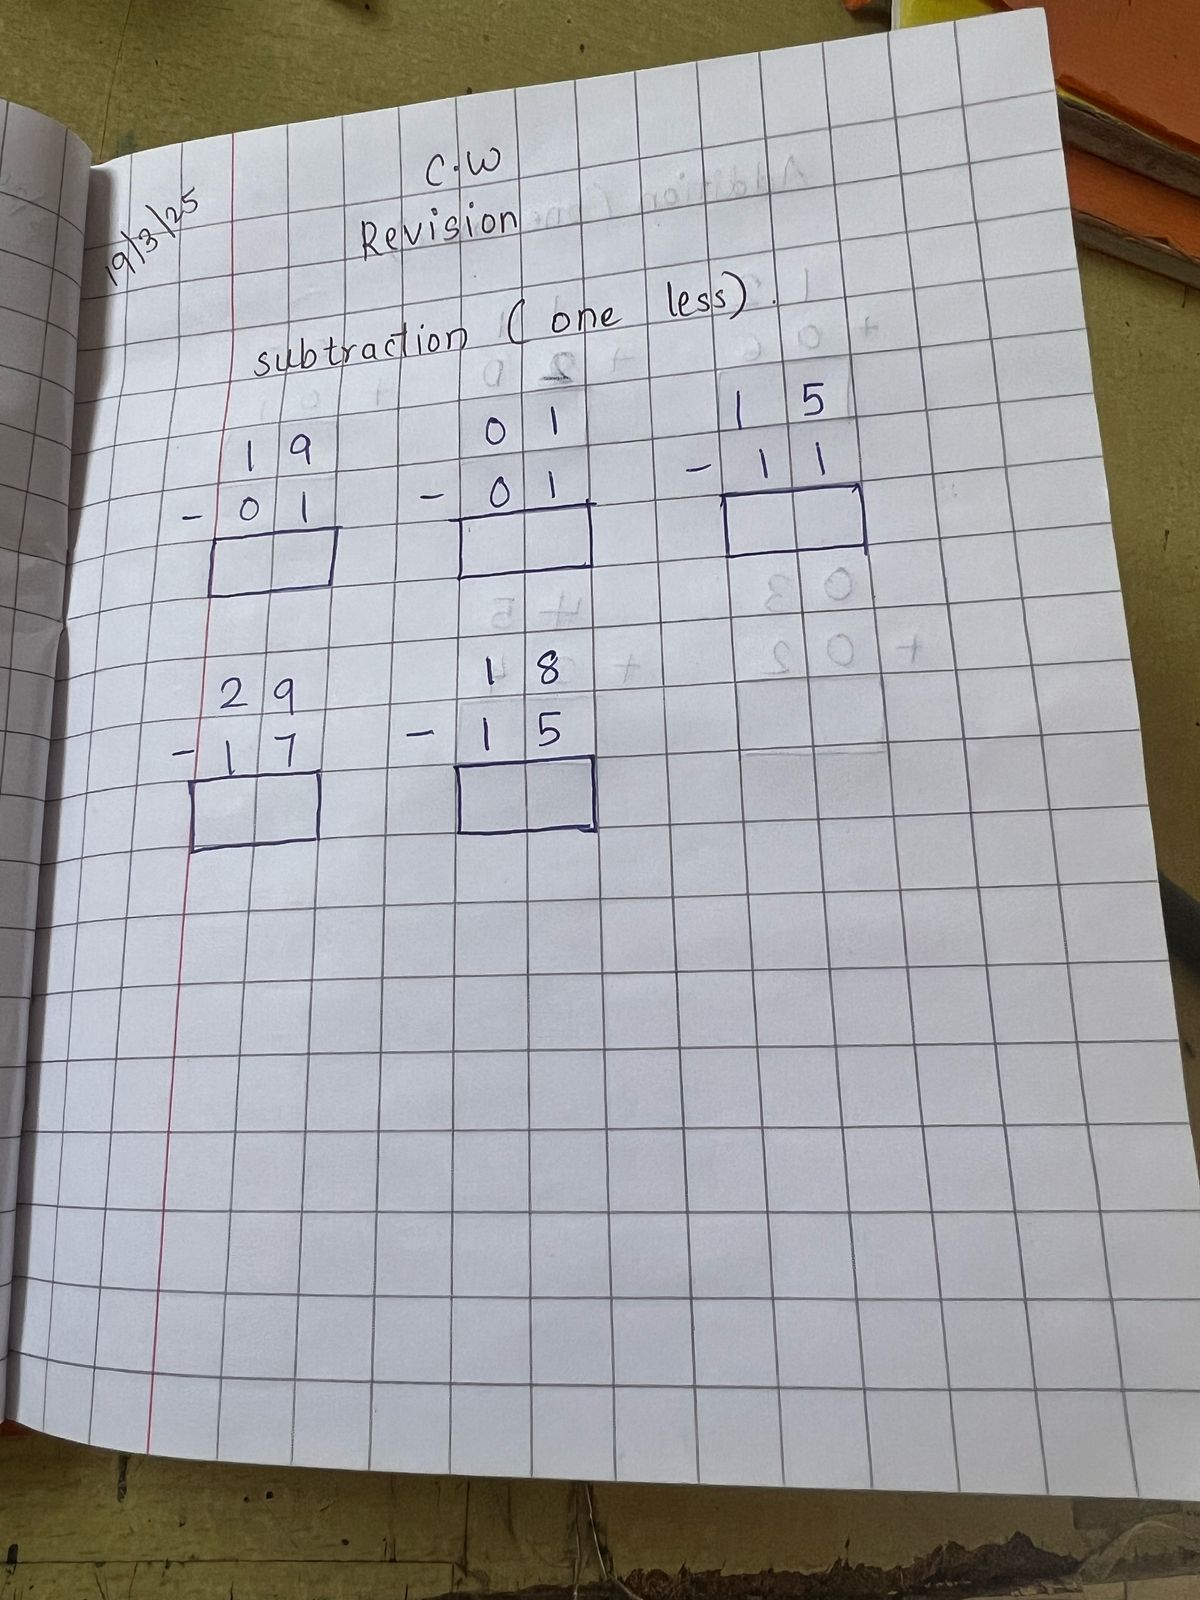 C.W
19/3/25
Revision
subtraction (one less).
19 01 15
- 01 - 01 - 11
29 18
- 17 - 15